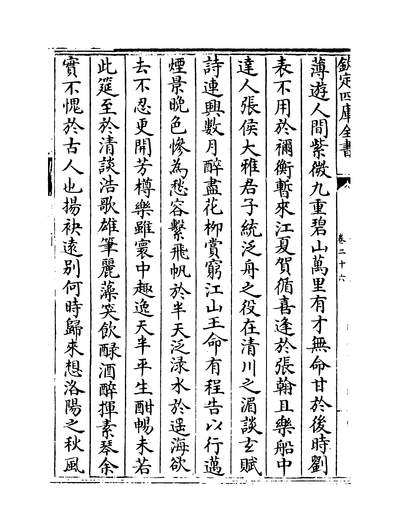 欽定四庫全書
卷二十六
薄遊人間紫微九重碧山萬里有才無命甘於後時劉
表不用於禰衡暫來江夏賀循喜逢於張翰且樂船中
達人張侯大雅君子統泛舟之役在清川之湄談玄賦
詩連興數月醉盡花柳賞窮江山王命有程告以行邁
煙景晚色慘為愁容繫飛帆於半天泛渌水於遥海欲
去不忍更開芳樽樂雖寰中趣逸天半平生酣暢未若
此筵至於清談浩歌雄筆麗藻笑飲醁酒醉揮素琴余
實不愧於古人也揚袂遠别何時歸來想洛陽之秋風